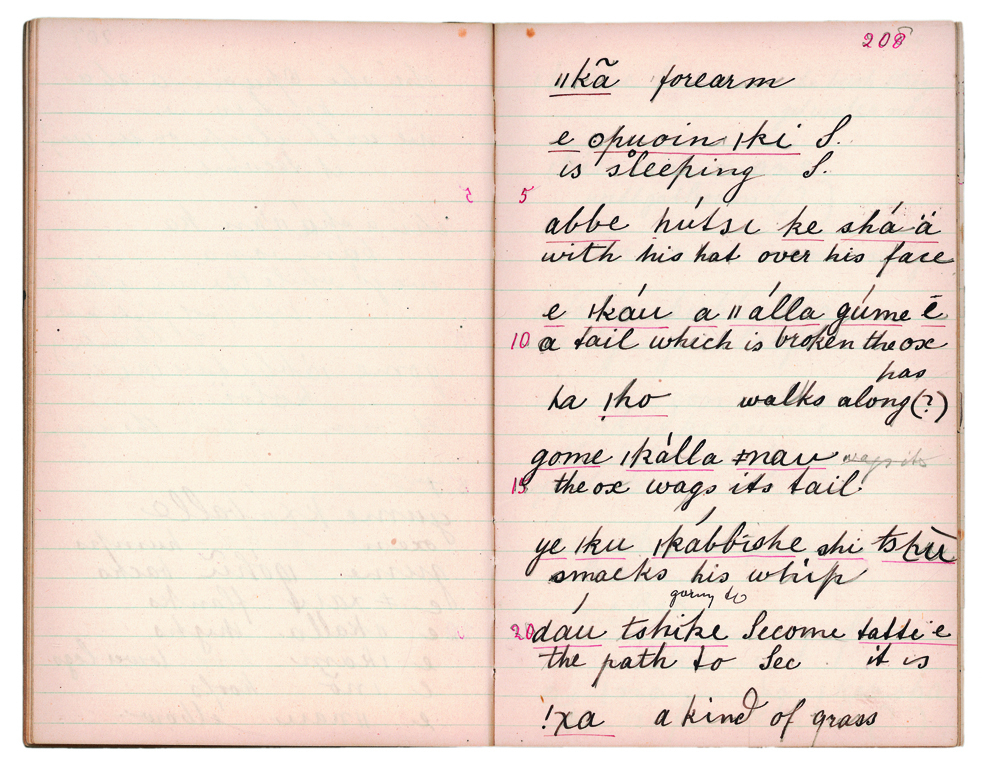 208
ǁkã forearm
e ʘpuoin ǀki S.
is sleeping S.
5
abbe hútsi ke shá ä
with his hat over his face
e ǀkáu a ǁálla gúme ē
10 a tail which is broken the ox
has
ha ǀho walks along (?)
gome ǀkálla ǂnau wags its
15 the ox wags its tail
ye ǀku ǀkábbishe shi tshù
smacks his whip
going to
20 dáu tshike Secome tatti e
the path to Sec it is
!xa a kind of grass